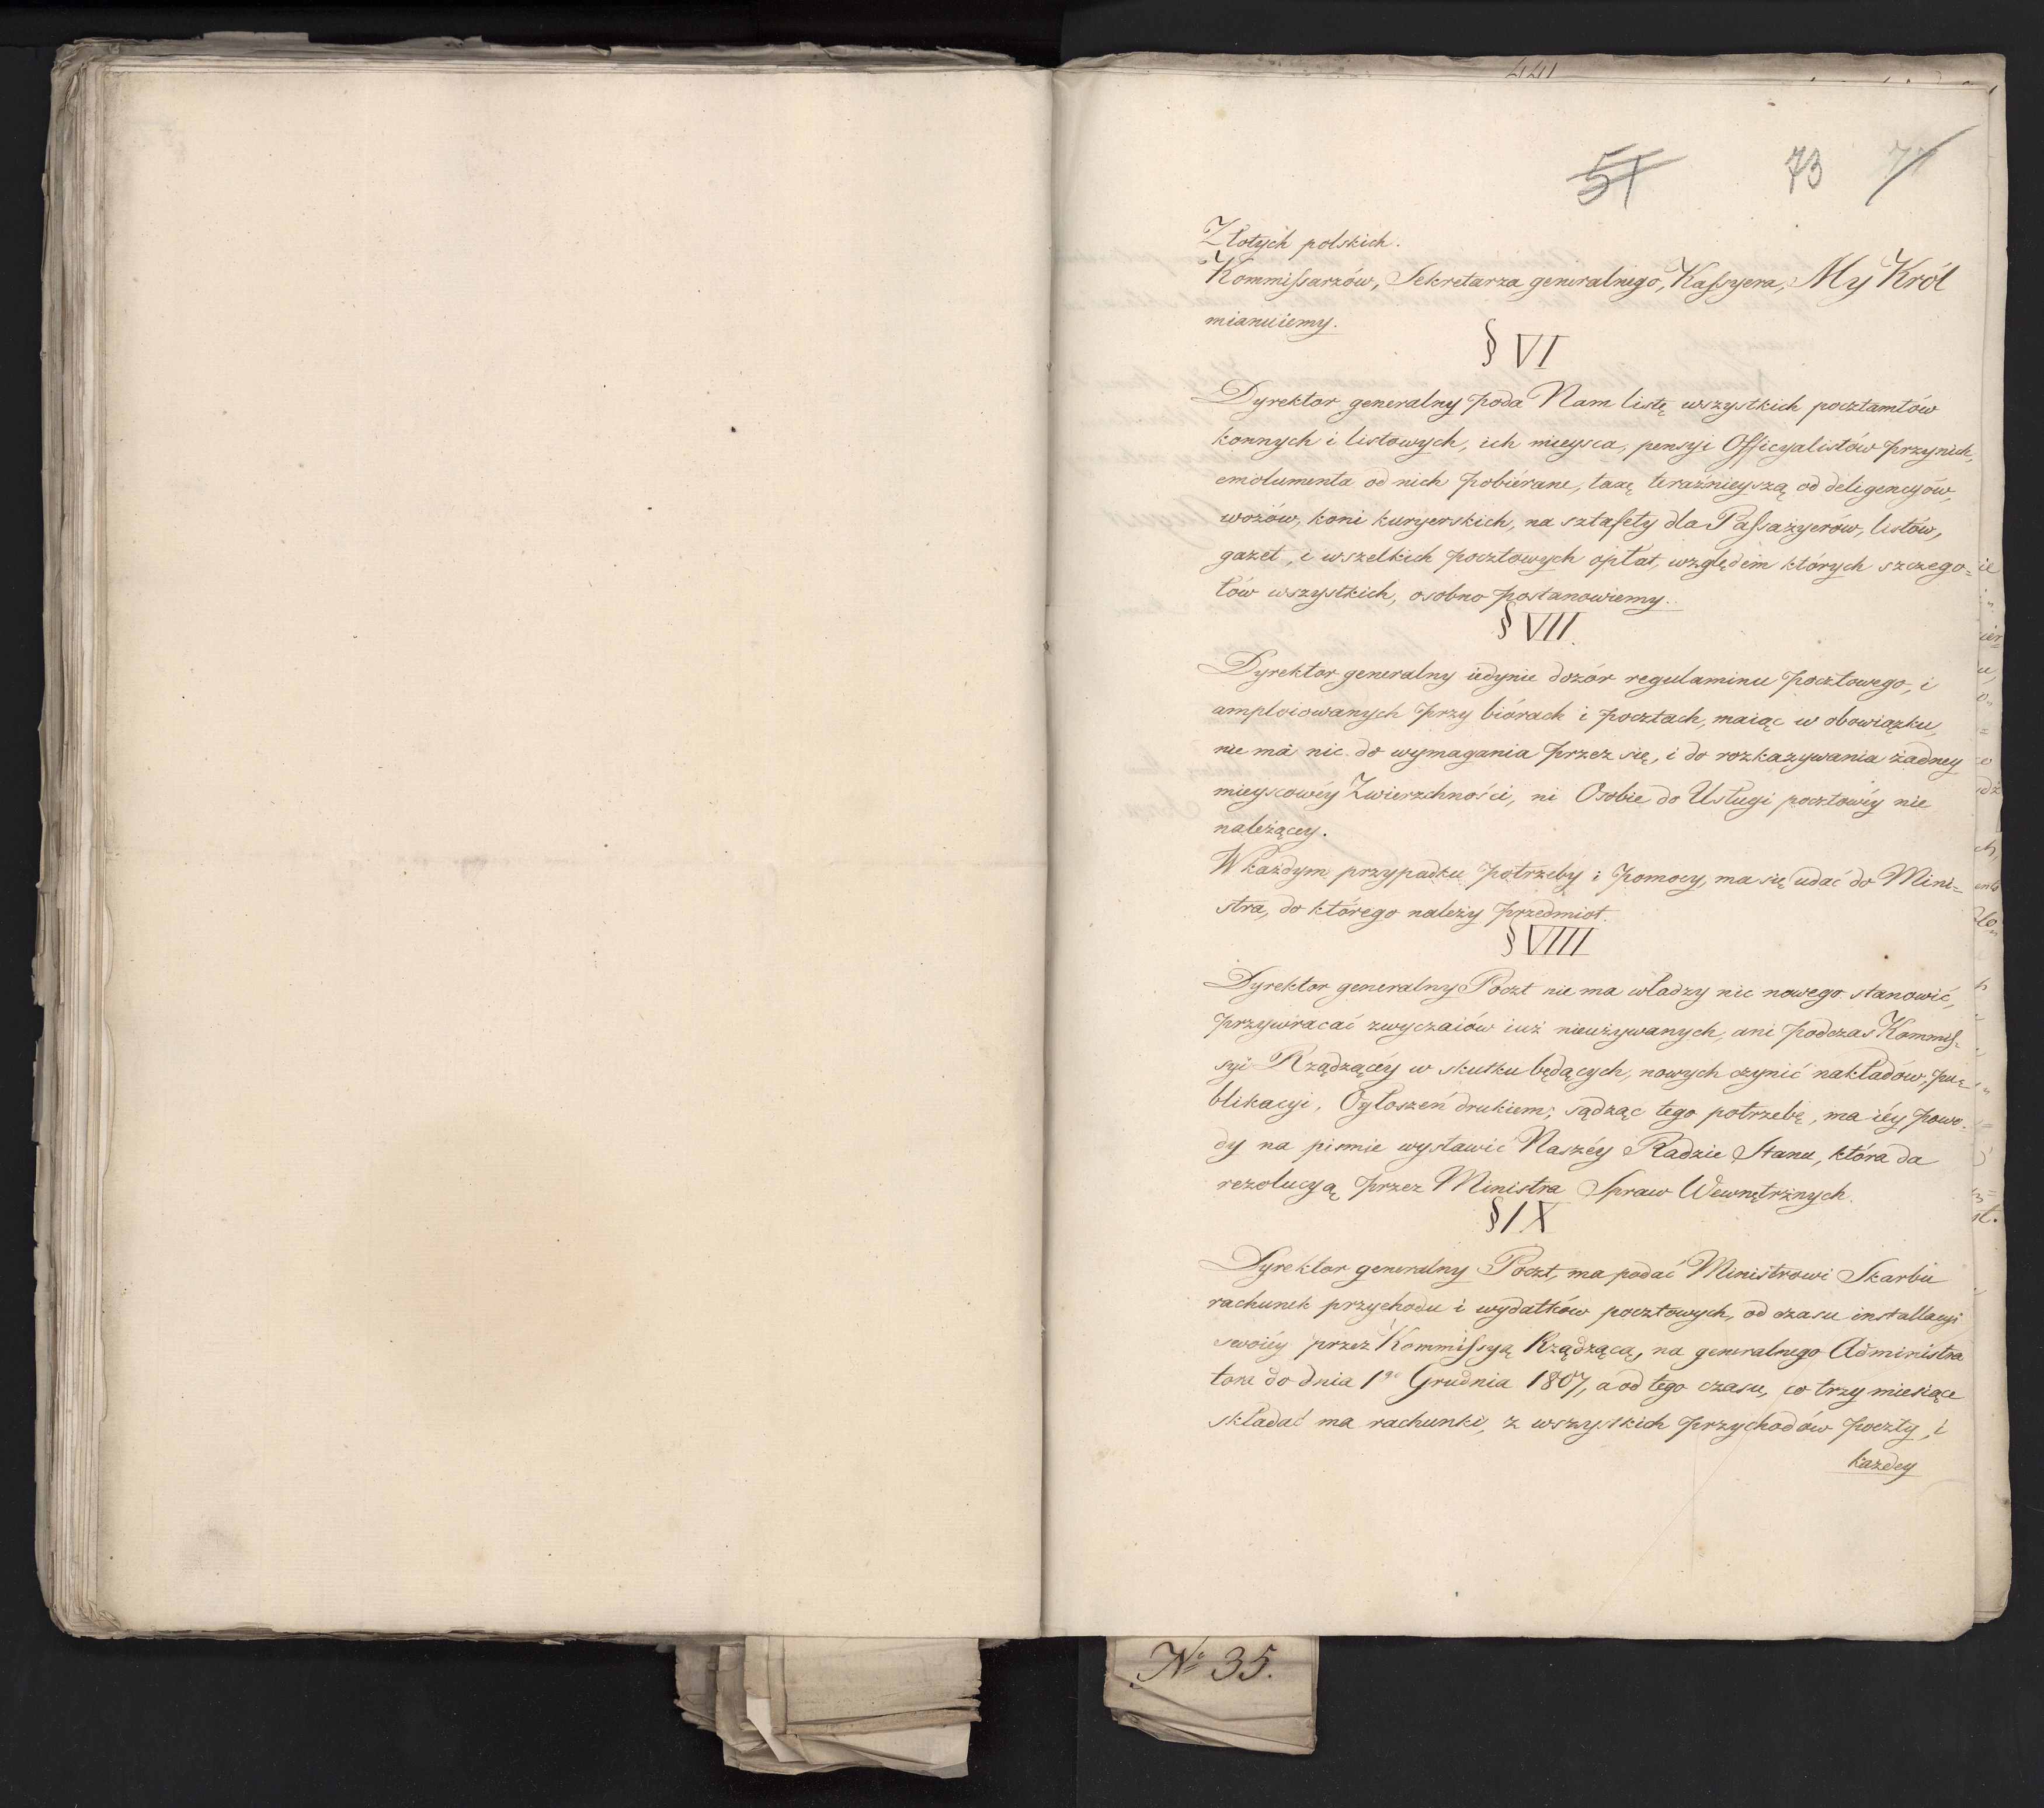 441
51 73 77
Złotych polskich.
Kommissarzów, Sekretarza generalnego, Kassyera, My Król
mianuiemy.
§ VI
Dyrektor generalny poda Nam listę wszystkich pocztamtów
konnych i listowych, ich mieysca, pensyi Officyalistów przy nich,
emolumenta od nich pobiérane, taxę teraźnieyszą od deligencyów,
wozów, koni kuryerskich, na sztafety dla Passażyerów, listów,
gazet, i wszelkich pocztowych opłat, względem których szczego=
łów wszystkich, osobno postanowiemy.
§ VII.
Dyrektor generalny iedynie dozór regulaminu pocztowego, i
amploiowanych przy biórach i pocztach, maiąc w obowiązku,
nie ma nic do wymagania przez się, i do rozkazywania żadney
mieyscowéy Zwierzchności, ni Osobie do Usługi pocztowéy nie
należącey.
W każdym przypadku potrzeby i pomocy, ma się udać do Mini=
stra, do którego należy przedmiot.
§ VIIII
Dyrektor generalny Poczt nie ma władzy nic nowego stanowić,
przywracać zwyczaiów iuż nieużywanych, ani podczas Kommis=
syi Rządzącéy w skutku będących, nowych czynić nakładów, pu=
blikacyi, Ogłoszeń drukiem; sądząc tego potrzebę, ma iéy powo=
dy na pismie wystawić Naszéy Radzie Stanu, która da
rezolucyą przez Ministra Spraw Wewnętrznych.
§ IX
Dyrektor generalny Poczt, ma podać Ministrowi Skarbu
rachunek przychodu i wydatków pocztowych, od czasu installacyi
swoiéy przez Kommissyą Rządzącą, na generalnego Administra
tora do dnia 1go Grudnia 1807, a od tego czasu, co trzy miesiące
składać ma rachunki, z wszystkich przychodów poczty, i
każdey
No 35.